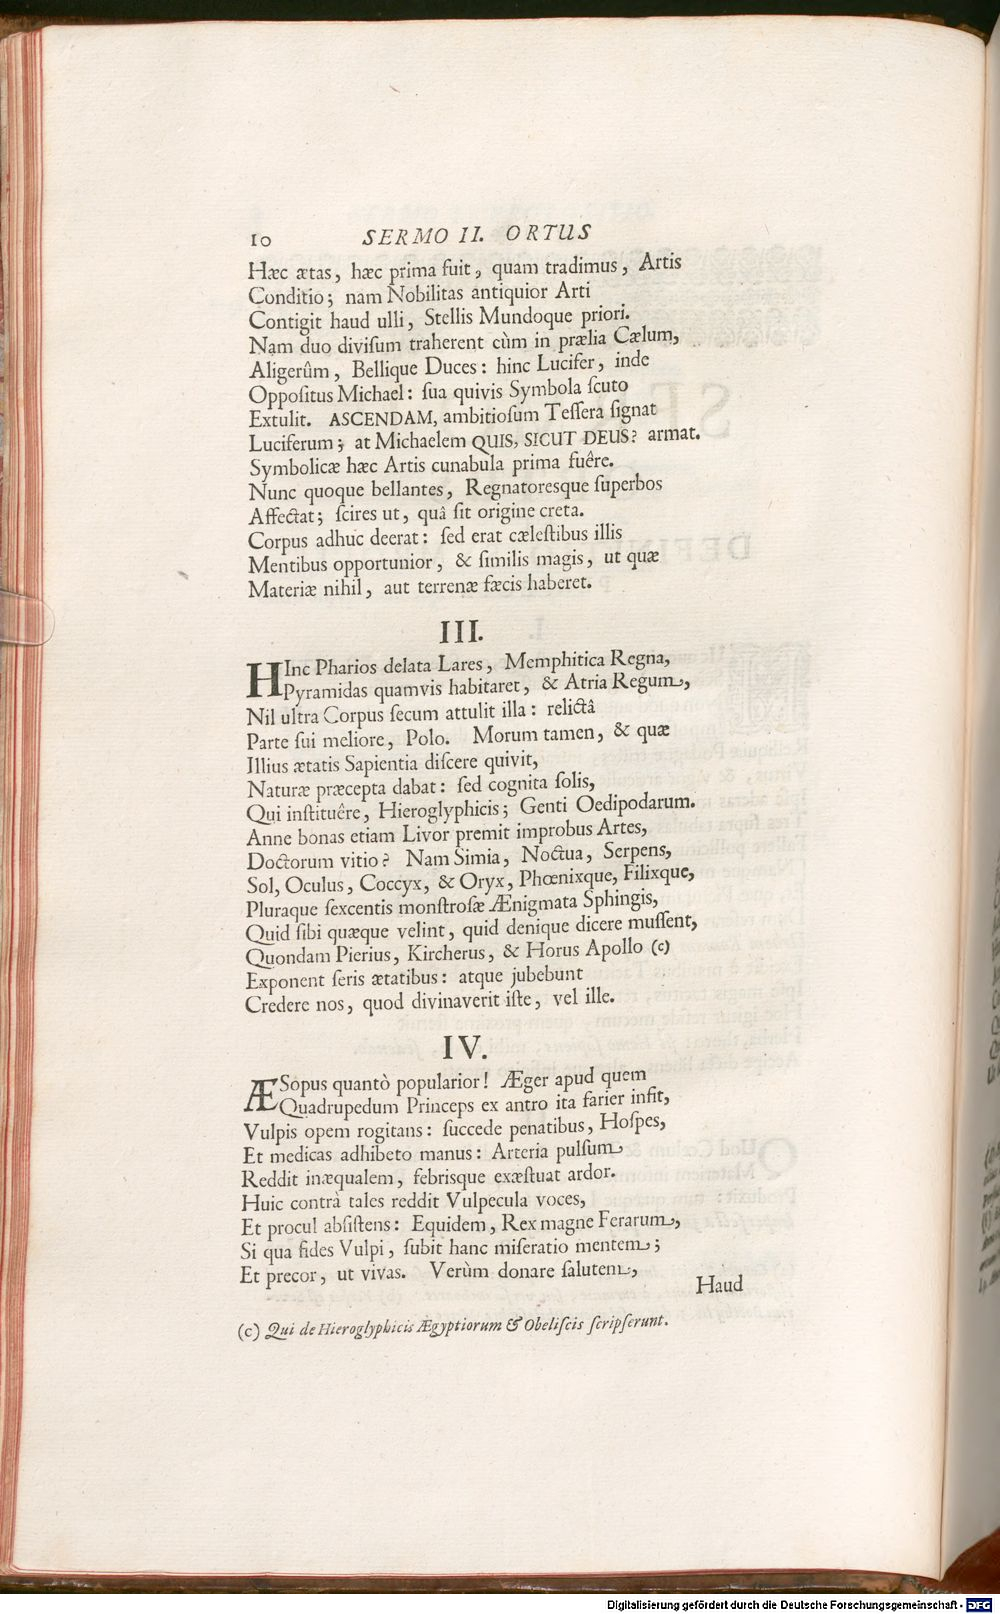 10 SERMO II. ORTUS
Hæc ætas, hæc prima fuit, quam tradimus, Artis
Conditio; nam Nobilitas antiquior Arti
Contigit haud ulli, Stellis Mundoque priori.
Nam duo diviſum traherent cùm in prælia Cælum,
Aligerûm, Bellique Duces: hinc Lucifer, inde
Oppoſitus Michael: ſua quivis Symbola ſcuto
Extulit. ASCENDAM, ambitioſum Teſſera ſignat
Luciferum; at Michaelem QUIS, SICUT DEUS? armat.
Symbolicæ hæc Artis cunabula prima fuêre.
Nunc quoque bellantes, Regnatoresque ſuperbos
Affectat; ſcires ut, quâ ſit origine creta.
Corpus adhuc deerat: ſed erat cæleſtibus illis
Mentibus opportunior, & ſimilis magis, ut quæ
Materiæ nihil, aut terrenæ fæcis haberet.
III.
HInc Pharios delata Lares, Memphitica Regna,
Pyramidas quamvis habitaret, & Atria Regum,
Nil ultra Corpus ſecum attulit illa: relictâ
Parte ſui meliore, Polo. Morum tamen, & quæ
Illius ætatis Sapientia diſcere quivit,
Naturæ præcepta dabat: ſed cognita ſolis,
Qui inſtituêre, Hieroglyphicis; Genti Oedipodarum.
Anne bonas etiam Livor premit improbus Artes,
Doctorum vitio? Nam Simia, Noctua, Serpens,
Sol, Oculus, Coccyx, & Oryx, Phœnixque, Filixque,
Pluraque ſexcentis monſtroſæ Ænigmata Sphingis,
Quid ſibi quæque velint, quid denique dicere muſſent,
Quondam Pierius, Kircherus, & Horus Apollo (c)
Exponent ſeris ætatibus: atque jubebunt
Credere nos, quod divinaverit iſte, vel ille.
IV.
ÆSopus quantò popularior! Æger apud quem
Quadrupedum Princeps ex antro ita farier infit,
Vulpis opem rogitans: ſuccede penatibus, Hoſpes,
Et medicas adhibeto manus: Arteria pulſum
Reddit inæqualem, febrisque exæſtuat ardor.
Huic contrà tales reddit Vulpecula voces,
Et procul abſiſtens: Equidem, Rex magne Ferarum,
Si qua fides Vulpi, ſubit hanc miſeratio mentem;
Et precor, ut vivas. Verùm donare ſalutem,
Haud
(c) Qui de Hieroglyphicis Ægyptiorum & Obeliſcis ſcripſerunt.
Digitalisierung gefördert durch die Deutsche Forschungsgemeinschaft - DFG